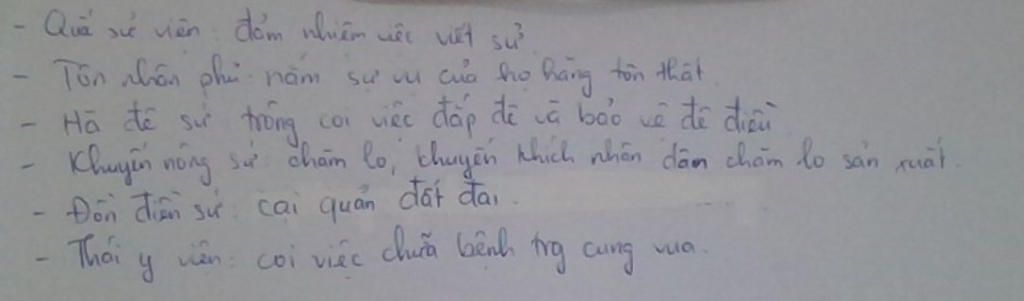 - Quả sử viên: đảm nhiệm việc viết sử
- Tôn nhân phủ: nắm sự vụ của họ hàng tôn thất.
- Hà đê sứ trông coi việc đắp đê và bảo vệ đê điều
- Khuyến nông sứ: chăm lo, khuyến khích nhân dân chăm lo sản xuất.
- Đồn điền sứ: cai quản đất đai.
- Thái y viện: coi việc chữa bệnh trg cung vua.